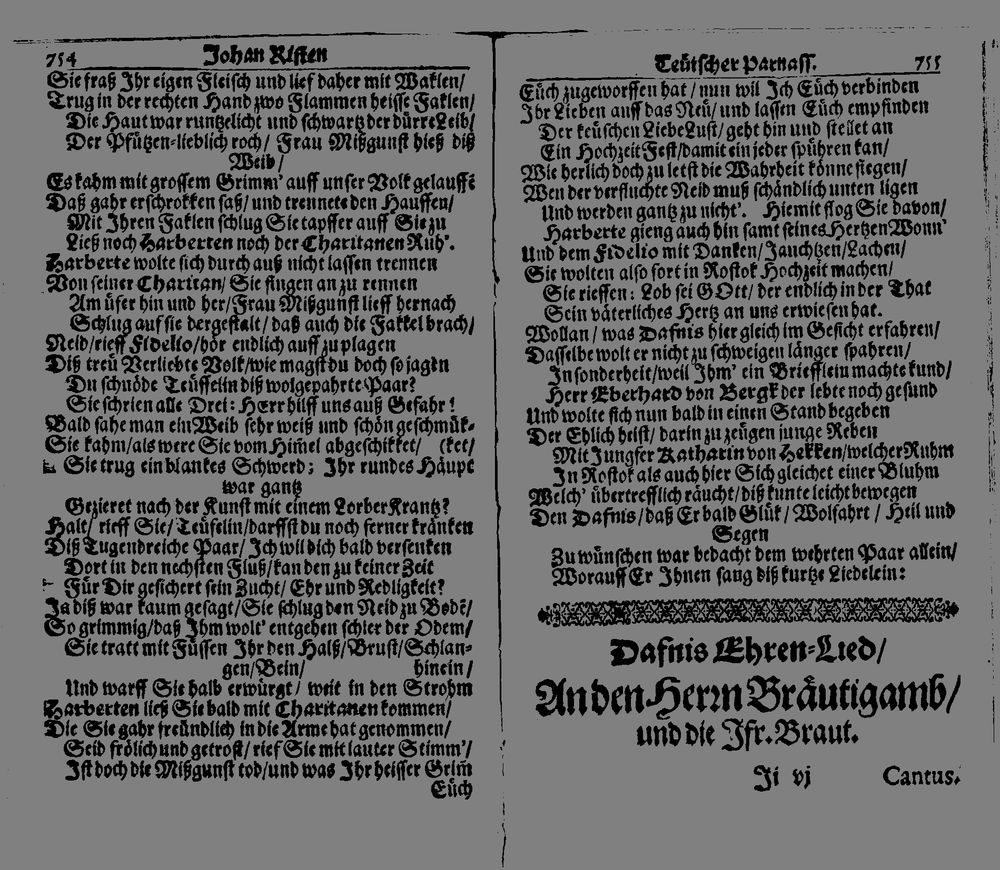 754 Johan Risten
Sie fraß Ihr eigen Fleisch und lief daher mit Waklen/
Trug in der rechten Hand zwo Flammen heisse Faklen/
Die Haut war runtzelicht und schwartz der dürre Leib/
Der Pfützen-lieblich roch/ Frau Mißgunst hieß diß
Weib/
Es kahm mit grossem Grimm' auff unser Volk gelauffē
Daß gahr erschrokken saß/ und trennete den Hauffen/
Mit Ihren Faklen schlug Sie tapffer auff Sie zu
Ließ noch Harberten noch der Charitanen Ruh'.
Harberte wolte sich durch auß nicht lassen trennen
Von seiner Charitan/ Sie fingen an zu rennen
Am üfer hin und her/ Frau Mißgunst lieff hernach
Schlug auf sie dergestalt/ daß auch die Fakkel brach/
Neid/ rieff Fidelio/ hör endlich auff zu plagen
Diß treü Verliebte Volk/ wie magst du doch so jagen
Du schnöde Teüffelin diß wolgepahrte Paar?
Sie schrien alle Drei: Herr hilff uns auß Gefahr!
Bald sahe man ein Weib sehr weiß und schön geschmük-
Sie kahm/ als were Sie vom Him̄el abgeschikket/ (ket/
Sie trug ein blankes Schwerd; Ihr rundes Häupt
war gantz
Gezieret nach der Kunst mit einem Lorber Krantz?
Halt/ rieff Sie/ Teüfelin/ darffst du noch ferner kränken
Diß Tugendreiche Paar/ Ich wil dich bald versenken
Dort in den nechsten Fluß/ kan den zu keiner Zeit
Für Dir gesichert sein Zucht/ Ehr und Redligkeit?
Ja diß war kaum gesagt/ Sie schlug den Neid zu Bodē/
So grimmig/ daß Ihm wolt' entgehen schier der Odem/
Sie tratt mit Füssen Ihr den Halß/ Brust/ Schlan-
gen/ Bein/ hinein/
Und warff Sie halb erwürgt/ weit in den Strohm
Harberten ließ Sie bald mit Charitanen kommen/
Die Sie gahr freündlich in die Arme hat genommen/
Seid frölich und getrost/ rief Sie mit lauter Stimm'/
Ist doch die Mißgunst tod/ und was Ihr heisser Grim̄
Eüch
Teütscher Parnass. 755
Eüch zugeworffen hat/ nun wil Ich Eüch verbinden
Ihr Lieben auff das Neü/ und lassen Eüch empfinden
Der keüschen Liebe Lust/ geht hin und stellet an
Ein Hochzeit Fest/ damit ein jeder spühren kan/
Wie herlich doch zu letst die Wahrheit könne siegen/
Wen der verfluchte Neid muß schändlich unten ligen
Und werden gantz zu nicht'. Hiemit flog Sie davon/
Harberte gieng auch hin samt seines Hertzen Wonn'
Und dem Fidelio mit Danken/ Jauchtzen/ Lachen/
Sie wolten also fort in Rostok Hochzeit machen/
Sie rieffen: Lob sei GOtt/ der endlich in der That
Sein väterliches Hertz an uns erwiesen hat.
Wollan/ was Dafnis hier gleich im Gesicht erfahren/
Dasselbe wolt er nicht zu schweigen länger spahren/
In sonderheit/ weil Ihm' ein Brieffleim machte kund/
Herr Eberhard von Bergk der lebte noch gesund
Und wolte sich nun bald in einen Stand begeben
Der Ehlich heist/ darin zu zeügen junge Reben
Mit Jungfer Katharin von Hekken/ welcher Ruhm
In Rostok als auch hier Sich gleichet einer Bluhm
Welch' übertrefflich räucht/ diß kunte leicht bewegen
Den Dafnis/ daß Er bald Glük/ Wolfahrt/ Heil und
Segen
Zu wünschen war bedacht dem wehrten Paar allein/
Worauff Er Ihnen sang diß kurtze Liedelein:
Dafnis Ehren-Lied/
An den Herrn Bräutigamb/
und die Jfr. Braut.
Ii vj Cantus.